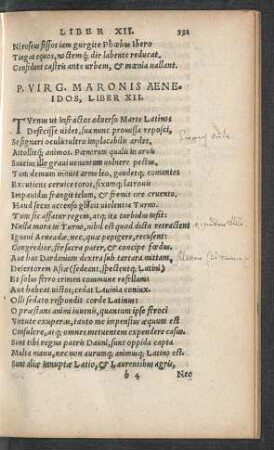 LIBER XII. 391
Ni roseus fessos iam gurgite Phœbus Ibero
Tingat equos, noctemq; die labente reducat.
Considunt castris ante urbem, & mœnia uallant.
P. VIRG. MARONIS AENE-
IDOS, LIBER XII.
TVrnus ut infractos aduerso Marte Latinos
Defecisse uidet, sua nunc promissa reposci,
Se signari oculis: ultro implacabilis ardet,
Attollitq; animos. Pœnorum qualis in aruis
Saucius ille graui uenantum uulnere pectus,
Tum demum mouet arma leo, gaudetq; comantes
Excutiens ceruice toros, fixumq; latronis
Impauidus frangit telum, & fremit ore cruento.
Haud secus accenso gliscit uiolentia Turno.
Tum sic affatur regem, atq; ita turbidus infit:
Nulla mora in Turno, nihil est quod dicta retractent
Ignaui Aeneadæ, nec, quæ pepigere, recusent:
Congredior, fer sacra pater, & concipe fœdus.
Aut hac Dardanium dextra sub tartara mittam,
Desertorem Asiæ (sedeant, spectentq; Latini)
Et solus ferro crimen commune refellam:
Aut habeat uictos, cedat Lauinia coniux.
Olli sedato respondit corde Latinus:
O præstans animi iuuenis, quantum ipse feroci
Virtute exuperas, tanto me impensius æquum est
Consulere, atq; omnes metuentem expendere casus.
Sunt tibi regna patris Dauni, sunt oppida capta
Multa manu, nec non aurumq; animusq; Latino est.
Sunt aliæ innuptæ Latio, & Laurentibus agris,
b 4 Nec